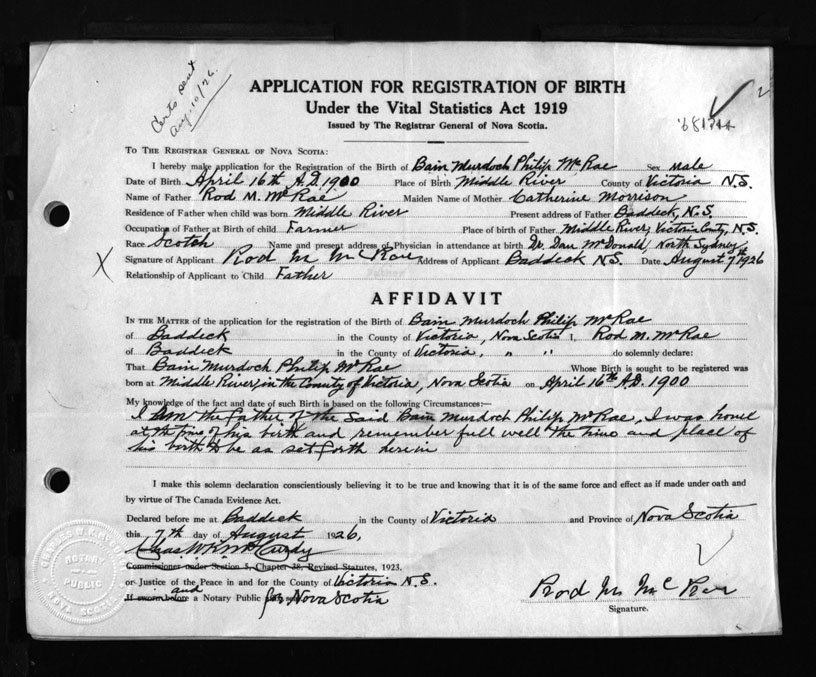 Certs sent
Aug. 10/26.
APPLICATION FOR REGISTRATION OF BIRTH
Under the Vital Statistics Act 1919
Issued by The Registrar General of Nova Scotia.
2
TO THE REGISTRAR GENERAL OF NOVA SCOTIA:
I hereby make application for the Registration of the Birth of Bain Murdoch Philip McRae Sex male
Date of Birth April 16th A.D. 1900 Place of Birth Middle River County of Victoria N.S.
Name of Father Rod M. McRae Maiden Name of Mother Catherine Morrison
Residence of Father when child was born Middle River Present address of Father Baddeck, N.S.
Occupation of Father at Birth of child Farmer Place of birth of Father Middle River, Victoria County, N.S.
Race Scotch Name and present address of Physician in attendance at birth Dr. Dan McDonald, North Sydney
Signature of Applicant Rod M McRae Address of Applicant Baddeck N.S. Date August 7th 1926
X
Relationship of Applicant to Child Father
AFFIDAVIT
IN THE MATTER of the application for the registration of the Birth of Bain Murdoch Philip McRae
of Baddeck in the County of Victoria, Nova Scotia I, Rod M. McRae
of Baddeck in the County of Victoria, " " do solemnly declare:
That Bain Murdoch Philip McRae Whose Birth is sought to be registered was
born at Middle River, in the County of Victoria, Nova Scotia on April 16th A.D. 1900
My knowledge of the fact and date of such Birth is based on the following Circumstances:—
I am the father of the said Bain Murdoch Philip McRae, I was home
at the time of his birth and remember full well the time and place of
his birth to be as set forth herein
I make this solemn declaration conscientiously believing it to be true and knowing that it is of the same force and effect as if made under oath and
by virtue of The Canada Evidence Act.
Declared before me at Baddeck in the County of Victoria and Province of Nova Scotia
this 7th day of August 1926,
Chas. W. K. McCurdy
Commissioner under Section 5, Chapter 38, Revised Statutes, 1923.
or Justice of the Peace in and for the County of Victoria N.S.
and
If sworn before a Notary Public for Nova Scotia
Rod M McRae
Signature.
NOTARY
PUBLIC
NOVA SCOTIA